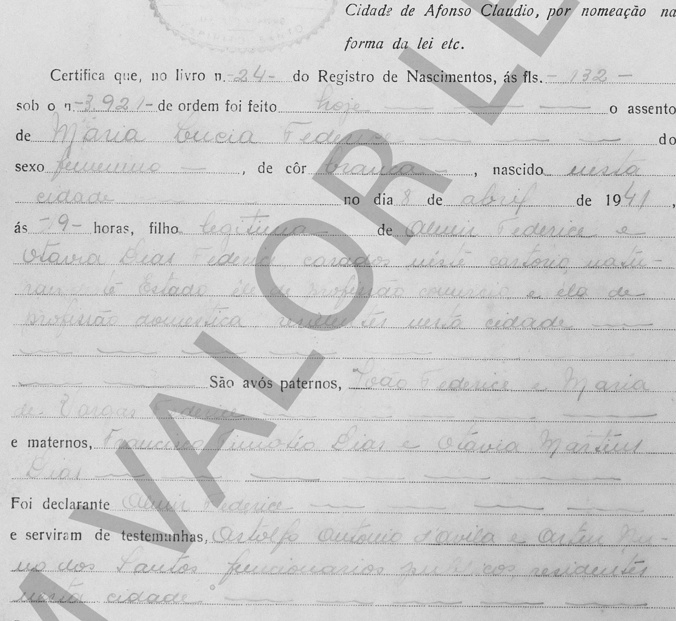 Cidade de Afonso Claudio, por nomeação na
forma da lei etc.
Certifica que, no livro n. -24- do Registro de Nascimentos, ás fls. - 132 -
sob o n -3921- de ordem foi feito hoje o assento
de Maria Lucia Federice do
sexo feminino, de côr branca, nascido nesta
cidade no dia 8 de abril de 1941,
ás -9- horas, filho legitima de Almir Federice e
Otavia Dias Federice casados neste cartorio
Estado, ele de profissão comercio e ela de
profissão domestica residentes nesta cidade
São avós paternos, João Federice e Maria
de Vargas Federice
e maternos, Francisco Dias e Otavia Martins
Dias
Foi declarante Almir Federice
e serviram de testemunhas, Astolfo Antonio d'avila e
dos Santos funcionarios publicos residentes
nesta cidade.
M VALOR LE